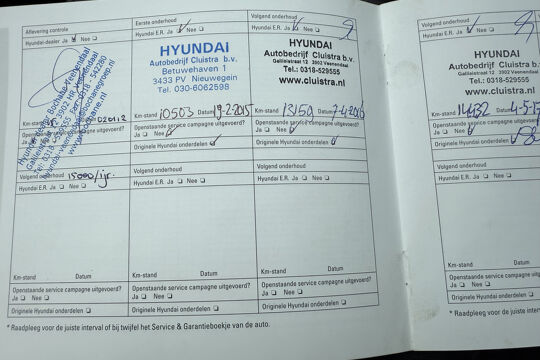 Aflevering controle
Hyundai-dealer Ja Nee
Km-stand
Volgend onderhoud 15000/jr.
Km-stand Datum
Openstaande service campagne uitgevoerd?
Ja Nee
Originele Hyundai onderdelen
Eerste onderhoud
Hyundai E.R. Ja Nee
HYUNDAI
Autobedrijf Cluistra b.v.
Betuwehaven 1
3433 PV Nieuwegein
Tel. 030-6062598
Km-stand 10503 Datum 19-2-2015
Openstaande service campagne uitgevoerd?
Ja Nee
Originele Hyundai onderdelen
Volgend onderhoud
Hyundai E.R. Ja Nee
Km-stand Datum
Openstaande service campagne uitgevoerd?
Ja Nee
Originele Hyundai onderdelen
Volgend onderhoud
Hyundai E.R. Ja Nee
HYUNDAI
Autobedrijf Cluistra b.v.
Galileistraat 12 3902 Veenendaal
Tel.: 0318-529555
www.cluistra.nl
Km-stand 13150 Datum
Openstaande service campagne uitgevoerd?
Ja Nee
Originele Hyundai onderdelen
Volgend onderhoud
Hyundai E.R. Ja Nee
Km-stand Datum
Openstaande service campagne uitgevoerd?
Ja Nee
Originele Hyundai onderdelen
* Raadpleeg voor de juiste interval of bij twijfel het Service & Garantieboekje van de auto.
Volgend onderhoud
Hyundai E.R. Ja Nee
HYUNDAI
Autobedrijf Cluistra b.v.
Galileistraat 12 3902 Veenendaal
Tel.: 0318-529555
www.cluistra.nl
Km-stand Datum
Openstaande service campagne
Ja Nee
Originele Hyundai onderdelen
Volgend onderhoud
Hyundai E.R. Ja Nee
Km-stand Datum
Openstaande service campagne
Ja Nee
Originele Hyundai onderdelen
* Raadpleeg voor de juiste